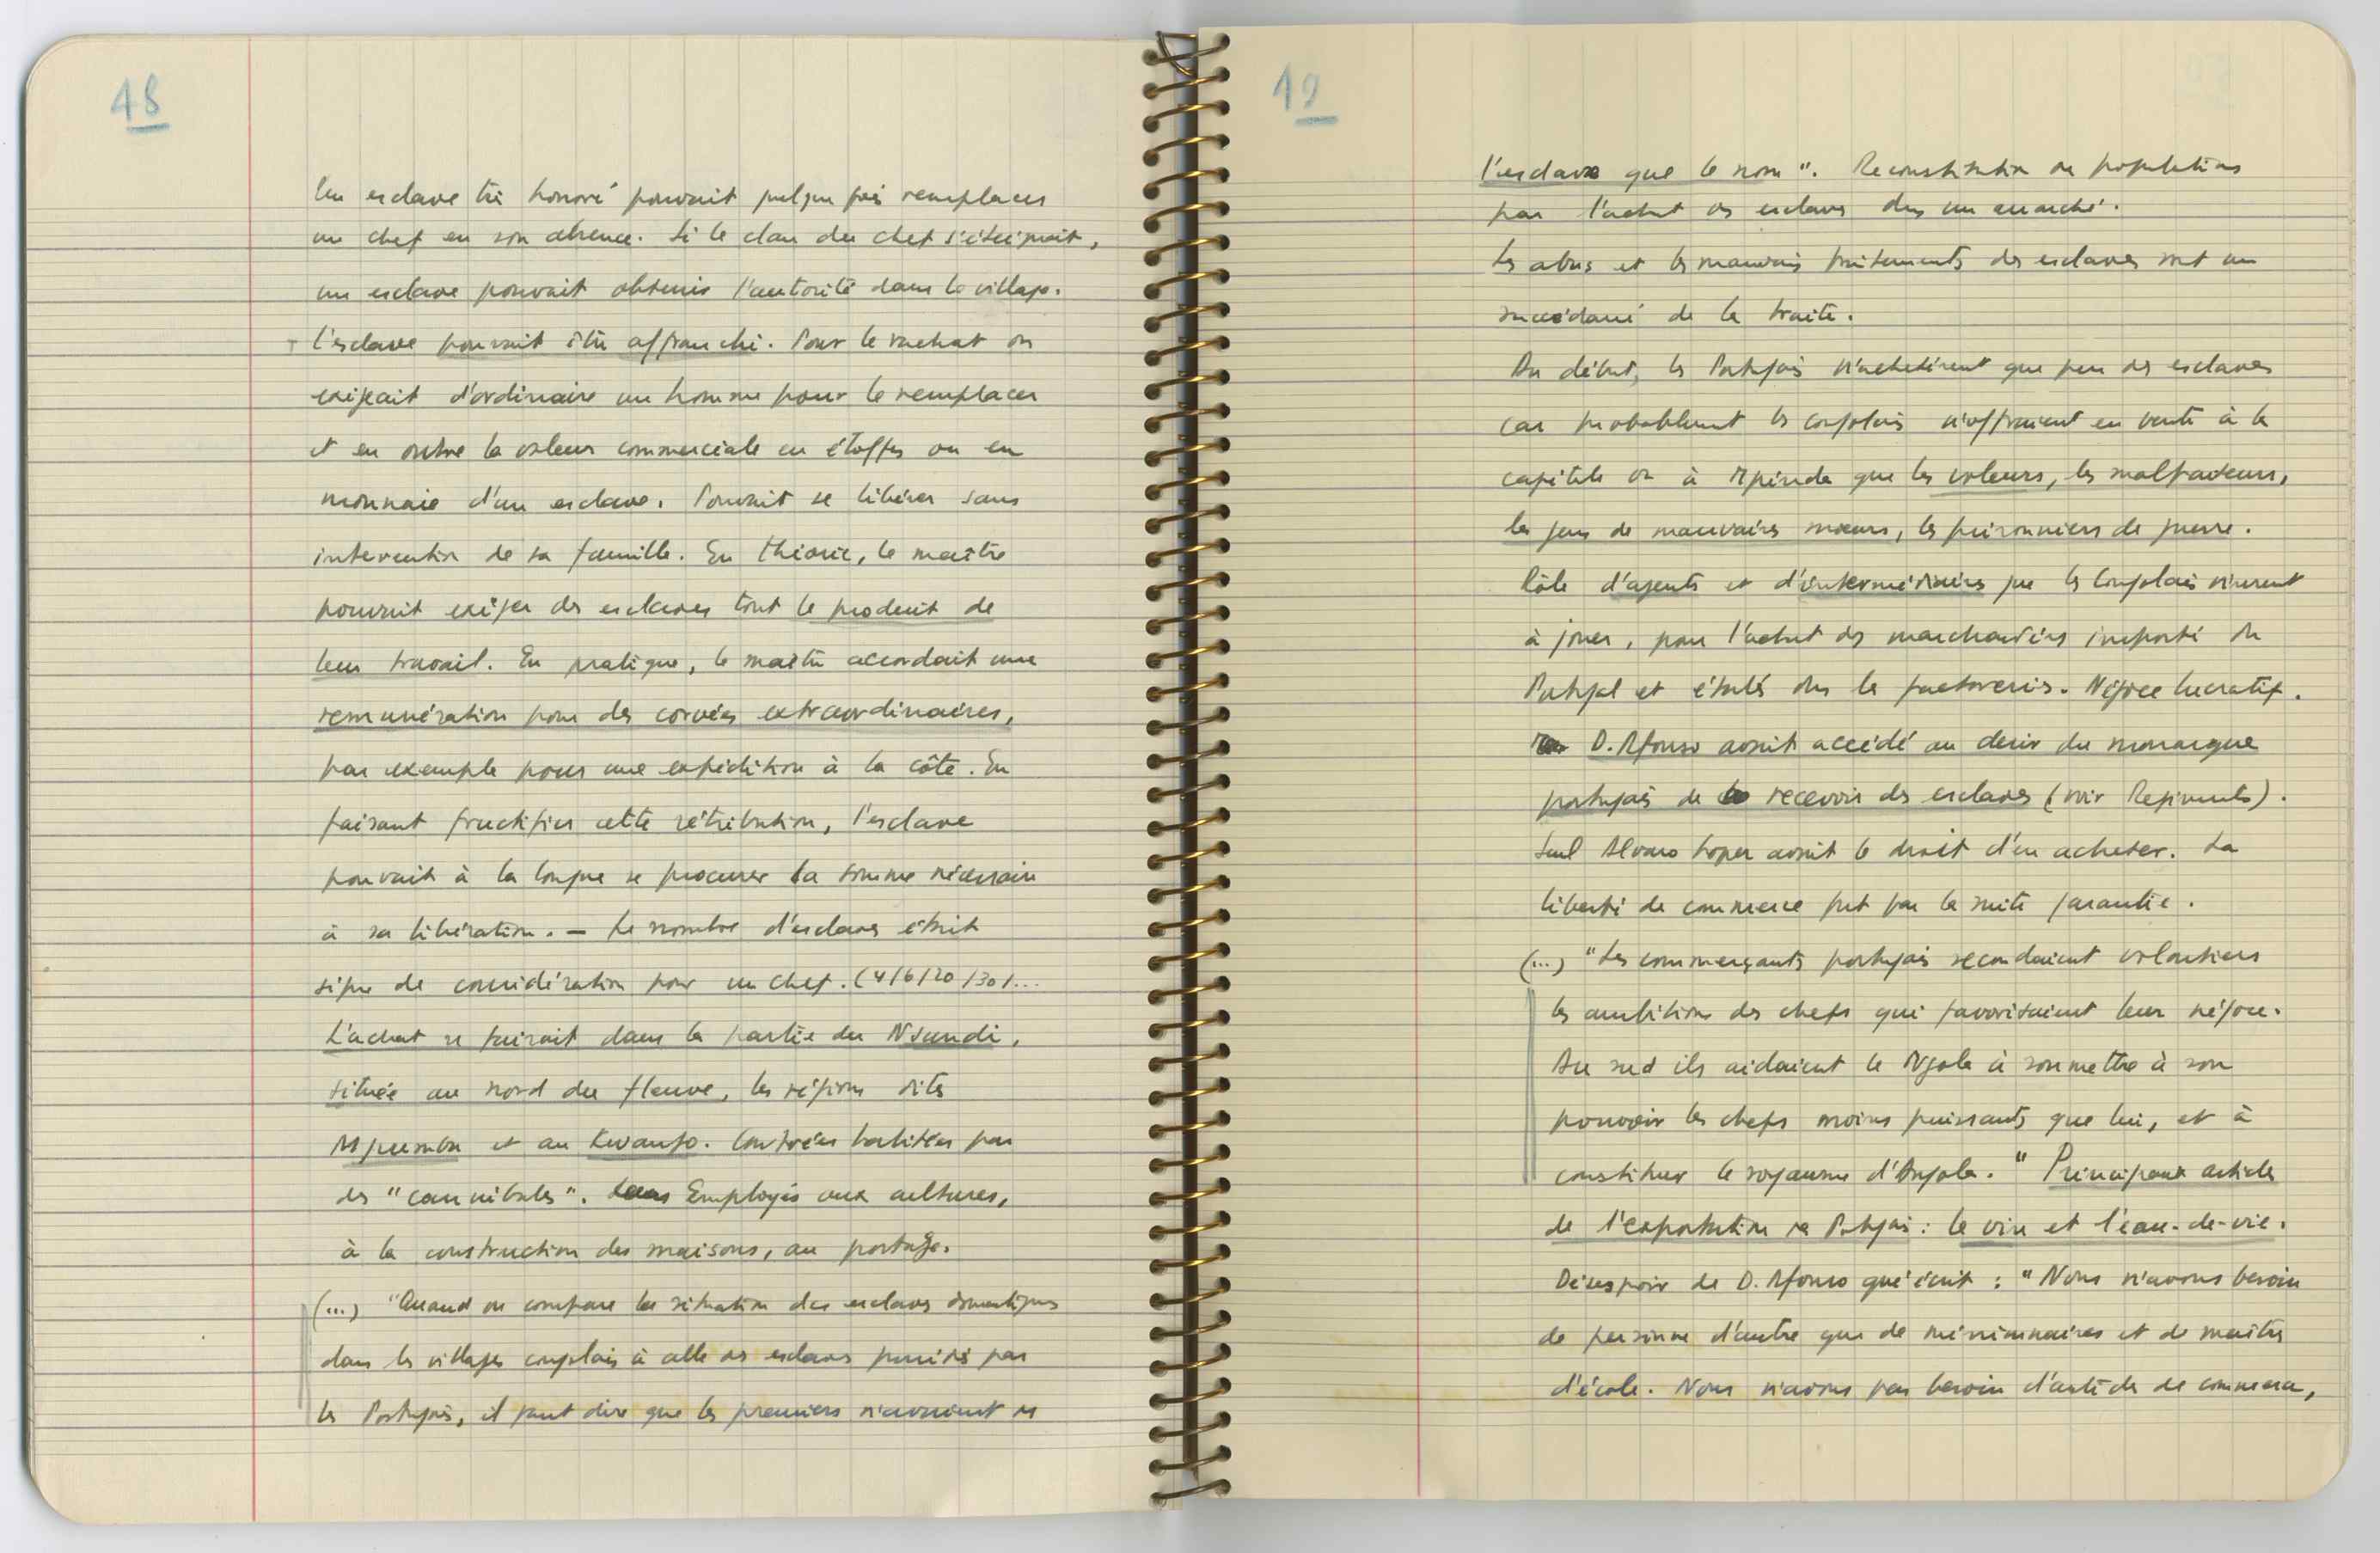 48
Un esclave très honoré pouvait quelque fois remplacer
un chef en son absence. Si le clan du chef s'éteignait,
un esclave pouvait obtenir l'autorité dans le village.
L'esclave pouvait être affranchi. Pour le rachat on
exigeait d'ordinaire un homme pour le remplacer
et en outre la valeur commerciale en étoffes ou en
monnaie d'un esclave. Pouvait se libérer sans
intervention de sa famille. En théorie, le maître
pouvait exiger des esclaves tout le produit de
leur travail. En pratique, le maître accordait une
remunération pour des corvées extraordinaires,
par exemple pour une expédition à la côte. En
faisant fructifier cette rétribution, l'esclave
pouvait à la longue se procurer la somme nécessaire
à sa libération. — Le nombre d'esclaves était
signe de considération pour un chef. (4/6/20/30/...
L'achat se faisait dans la partie du Nsundi,
située au nord du fleuve, les régions dites
Mpumbu et au Kwango. Contrées habitées par
des "cannibales". Employés aux cultures,
à la construction des maisons, au portage.
(...) "Quand on compare la situation des esclaves domestiques
dans les villages congolais à celle des esclaves par
les Portugais, il faut dire que les premiers n'avaient de
19
l'esclave que le nom". Reconstitution de populations
par l'achat des esclaves dans un marché.
Les abus et les mauvais traitements des esclaves sont un
succédané de la traite.
Au début, les Portugais n'achetèrent que peu des esclaves
car probablement les congolais n'offraient en vente à la
capitale ou à Mpinda que les voleurs, les malfaiteurs,
les gens de mauvaises moeurs, les prisonniers de guerre.
Rôle d'agents et d'intermédiaires que les Congolais vinrent
à jouer, pour l'achat des marchandises importé du
Portugal et étalés dans les factoreries. Négoce lucratif.
D. Afonso avait accédé au désir du monarque
portugais de recevoir des esclaves (voir Regimento).
Seul Alvaro Lopes avait le droit d'en acheter. La
liberté de commerce fut par la suite garantie.
(...) "Les commerçants portugais secondaient volontiers
les ambitions des chefs qui favorisaient leur négoce.
Au sud ils aidaient le Ngola à soumettre à son
pouvoir les chefs moins puissants que lui, et à
constituer le royaume d'Angola." Principaux articles
de l'exportation des Portugais : le vin et l'eau-de-vie.
Désespoir de D. Afonso qui écrit : "Nous n'avons besoin
de personne d'autre que de missionnaires et de maîtres
d'école. Nous n'avons pas besoin d'articles de commerce,